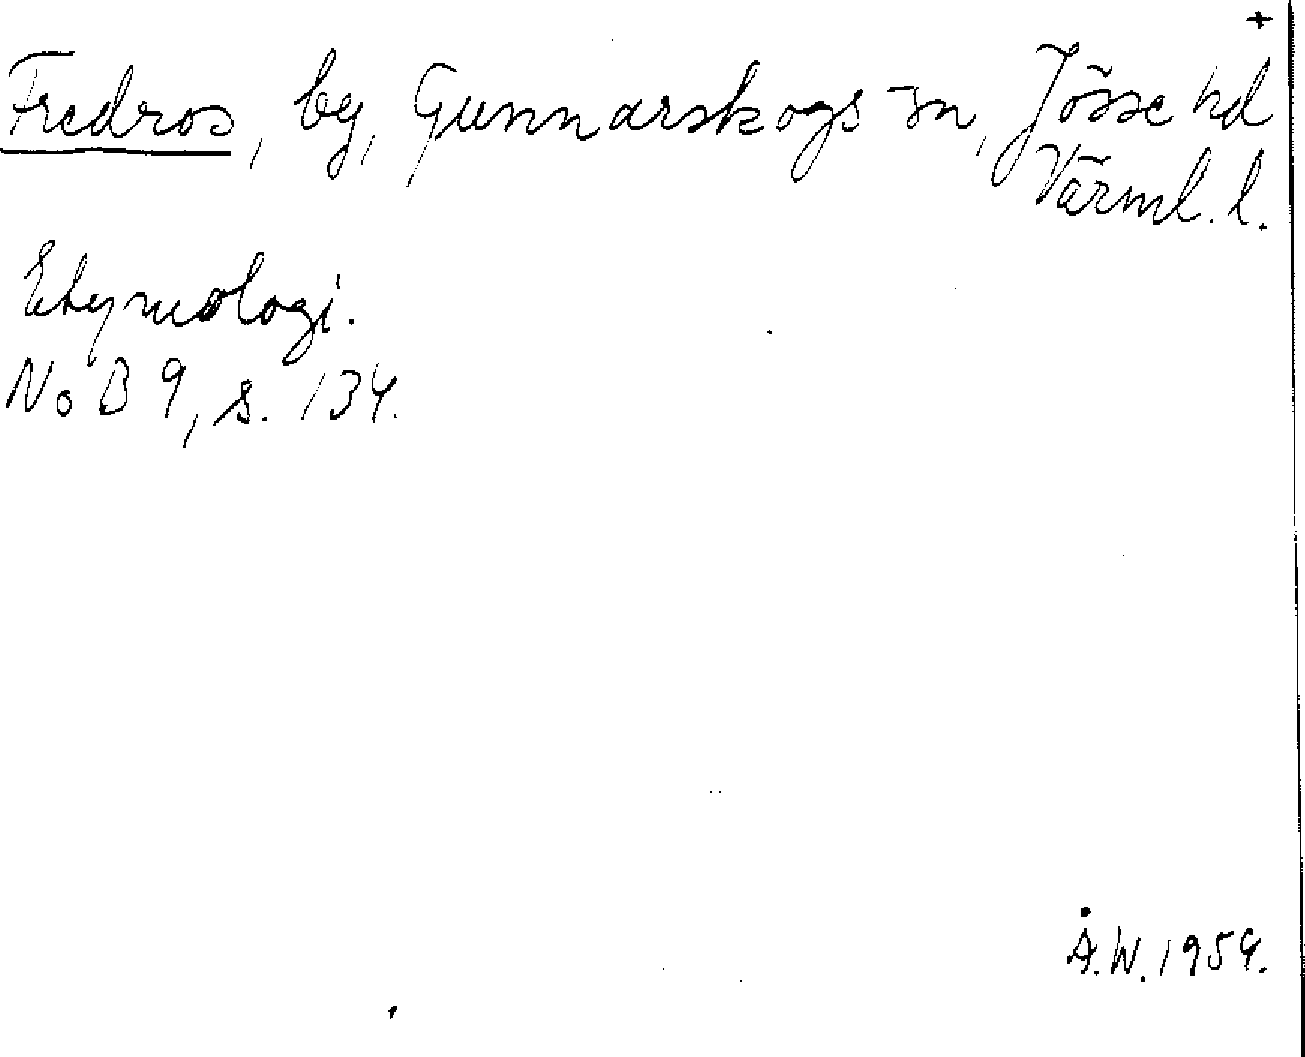 +
Fredros, by, Gunnarskogs sn, Jösse hd
Värml. l.
Etymologi.
NoB 9, s. 134.
Å.W. 1954.